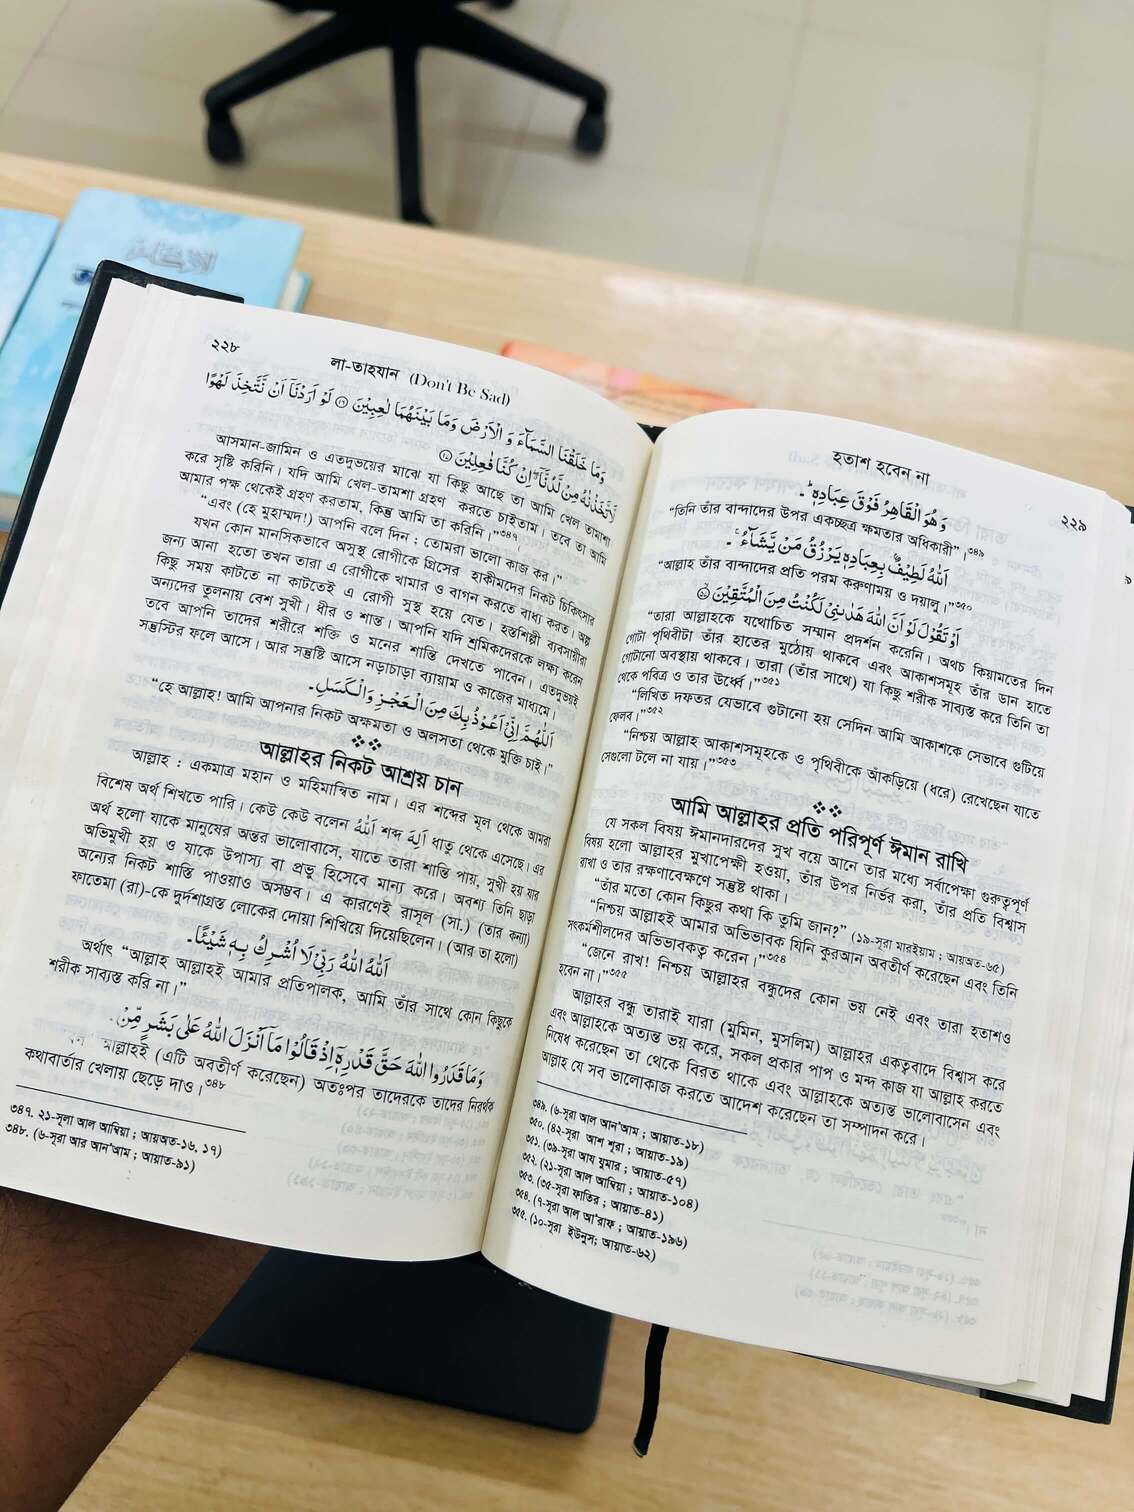 ২২৮
লা-তাহযান (Don't Be Sad)
وَمَا خَلَقْنَا السَّمَآءَ وَ الْاَرْضَ وَمَا بَيْنَهُمَا لٰعِبِيْنَ ۝١٦ لَوْ اَرَدْنَاۤ اَنْ نَّتَّخِذَ لَهْوًا
لَّاتَّخَذْنٰهُ مِنْ لَّدُنَّاۤ اِنْ كُنَّا فٰعِلِيْنَ ۝١٧
আসমান-জামিন ও এতদুভয়ের মাঝে যা কিছু আছে তা আমি খেল তামাশা
করে সৃষ্টি করিনি। যদি আমি খেল-তামশা গ্রহণ করতে চাইতাম। তবে তা আমি
আমার পক্ষ থেকেই গ্রহণ করতাম, কিন্তু আমি তা করিনি।"৩৪৭
"এবং (হে মুহাম্মদ!) আপনি বলে দিন : তোমরা ভালো কাজ কর।"
যখন কোন মানসিকভাবে অসুস্থ রোগীকে গ্রিসের হাকীমদের নিকট চিকিৎসার
জন্য আনা হতো তখন তারা এ রোগীকে খামার ও বাগন করতে বাধ্য করত। অল্প
কিছু সময় কাটতে না কাটতেই এ রোগী সুস্থ হয়ে যেত। হস্তশিল্পী ব্যবসায়ীরা
অন্যদের তুলনায় বেশ সুখী। ধীর ও শান্ত। আপনি যদি শ্রমিকদেরকে লক্ষ্য করেন
তবে আপনি তাদের শরীরে শক্তি ও মনের শান্তি দেখতে পাবেন। এতদুভয়ই
সন্তুস্টির ফলে আসে। আর সন্তুষ্টি আসে নড়াচাড়া ব্যায়াম ও কাজের মাধ্যমে।
اَللّٰهُمَّ اِنِّىْ اَعُوْذُ بِكَ مِنَ الْعَجْزِ وَالْكَسَلِ۔
"হে আল্লাহ! আমি আপনার নিকট অক্ষমতা ও অলসতা থেকে মুক্তি চাই।"
আল্লাহর নিকট আশ্রয় চান
আল্লাহ : একমাত্র মহান ও মহিমান্বিত নাম। এর শব্দের মূল থেকে আমরা
বিশেষ অর্থ শিখতে পারি। কেউ কেউ বলেন اَللّٰهُ শব্দ اَلِهَ ধাতু থেকে এসেছে। এর
অর্থ হলো যাকে মানুষের অন্তর ভালোবাসে, যাতে তারা শান্তি পায়, সুখী হয় যার
অভিমুখী হয় ও যাকে উপাস্য বা প্রভু হিসেবে মান্য করে। অবশ্য তিনি ছাড়া
অন্যের নিকট শান্তি পাওয়াও অসম্ভব। এ কারণেই রাসূল (সা.) (তার কন্যা)
ফাতেমা (রা)-কে দুর্দশাগ্রস্ত লোকের দোয়া শিখিয়ে দিয়েছিলেন। (আর তা হলো)
اَللّٰهُ اَللّٰهُ رَبِّىْ لَا اُشْرِكُ بِهٖ شَيْئًا۔
অর্থাৎ "আল্লাহ আল্লাহই আমার প্রতিপালক, আমি তাঁর সাথে কোন কিছুকে
শরীক সাব্যস্ত করি না।"
وَمَا قَدَرُوا اللّٰهَ حَقَّ قَدْرِهٖۤ اِذْ قَالُوْا مَاۤ اَنْزَلَ اللّٰهُ عَلٰى بَشَرٍ مِّنْ
আল্লাহই (এটি অবতীর্ণ করেছেন) অতঃপর তাদেরকে তাদের নিরর্থক
কথাবার্তার খেলায় ছেড়ে দাও।৩৪৮
৩৪৭. ২১-সূলা আল আম্বিয়া ; আয়অত-১৬, ১৭)
৩৪৮. (৬-সূরা আর আন'আম ; আয়াত-৯১)
হতাশ হবেন না
২২৯
وَهُوَ الْقَاهِرُ فَوْقَ عِبَادِهٖ ۔
"তিনি তাঁর বান্দাদের উপর একচ্ছত্র ক্ষমতার অধিকারী"।৩৪৯
اَللّٰهُ لَطِيْفٌۢ بِعِبَادِهٖ يَرْزُقُ مَنْ يَّشَآءُ ۔
"আল্লাহ তাঁর বান্দাদের প্রতি পরম করুণাময় ও দয়ালু।"৩৫০
اَوْ تَقُوْلَ لَوْ اَنَّ اللّٰهَ هَدٰىنِىْ لَكُنْتُ مِنَ الْمُتَّقِيْنَ
"তারা আল্লাহকে যথোচিত সম্মান প্রদর্শন করেনি। অথচ কিয়ামতের দিন
গোটা পৃথিবীটা তাঁর হাতের মুঠোয় থাকবে এবং আকাশসমূহ তাঁর ডান হাতে
গোটানো অবস্থায় থাকবে। তারা (তাঁর সাথে) যা কিছু শরীক সাব্যস্ত করে তিনি তা
থেকে পবিত্র ও তার ঊর্ধ্বে।"৩৫১
"লিখিত দফতর যেভাবে গুটানো হয় সেদিন আমি আকাশকে সেভাবে গুটিয়ে
ফেলব।"৩৫২
"নিশ্চয় আল্লাহ আকাশসমূহকে ও পৃথিবীকে আঁকড়িয়ে (ধরে) রেখেছেন যাতে
সেগুলো টলে না যায়।"৩৫৩
আমি আল্লাহর প্রতি পরিপূর্ণ ঈমান রাখি
যে সকল বিষয় ঈমানদারদের সুখ বয়ে আনে তার মধ্যে সর্বাপেক্ষা গুরুত্বপূর্ণ
বিষয় হলো আল্লাহর মুখাপেক্ষী হওয়া, তাঁর উপর নির্ভর করা, তাঁর প্রতি বিশ্বাস
রাখা ও তার রক্ষণাবেক্ষণে সন্তুষ্ট থাকা।
"তাঁর মতো কোন কিছুর কথা কি তুমি জান?" (১৯-সূরা মারইয়াম ; আয়অত-৬৫)
"নিশ্চয় আল্লাহই আমার অভিভাবক যিনি কুরআন অবতীর্ণ করেছেন এবং তিনি
সৎকর্মশীলদের অভিভাবকত্ব করেন।"৩৫৪
"জেনে রাখ! নিশ্চয় আল্লাহর বন্ধুদের কোন ভয় নেই এবং তারা হতাশও
হবেন না।"৩৫৫
আল্লাহর বন্ধু তারাই যারা (মুমিন, মুসলিম) আল্লাহর একত্ববাদে বিশ্বাস করে
এবং আল্লাহকে অত্যন্ত ভয় করে, সকল প্রকার পাপ ও মন্দ কাজ যা আল্লাহ করতে
নিষেধ করেছেন তা থেকে বিরত থাকে এবং আল্লাহকে অত্যন্ত ভালোবাসেন এবং
আল্লাহ যে সব ভালোকাজ করতে আদেশ করেছেন তা সম্পাদন করে।
৩৪৯. (৬-সূরা আল আন'আম ; আয়াত-১৮)
৩৫০. (৪২-সূরা আশ শূরা ; আয়াত-১৯)
৩৫১. (৩৯-সূরা আয যুমার ; আয়াত-৫৭)
৩৫২. (২১-সূরা আল আম্বিয়া ; আয়াত-১০৪)
৩৫৩. (৩৫-সূরা ফাতির ; আয়াত-৪১)
৩৫৪. (৭-সূরা আল আ'রাফ ; আয়াত-১৯৬)
৩৫৫. (১০-সূরা ইউনুস; আয়াত-৬২)